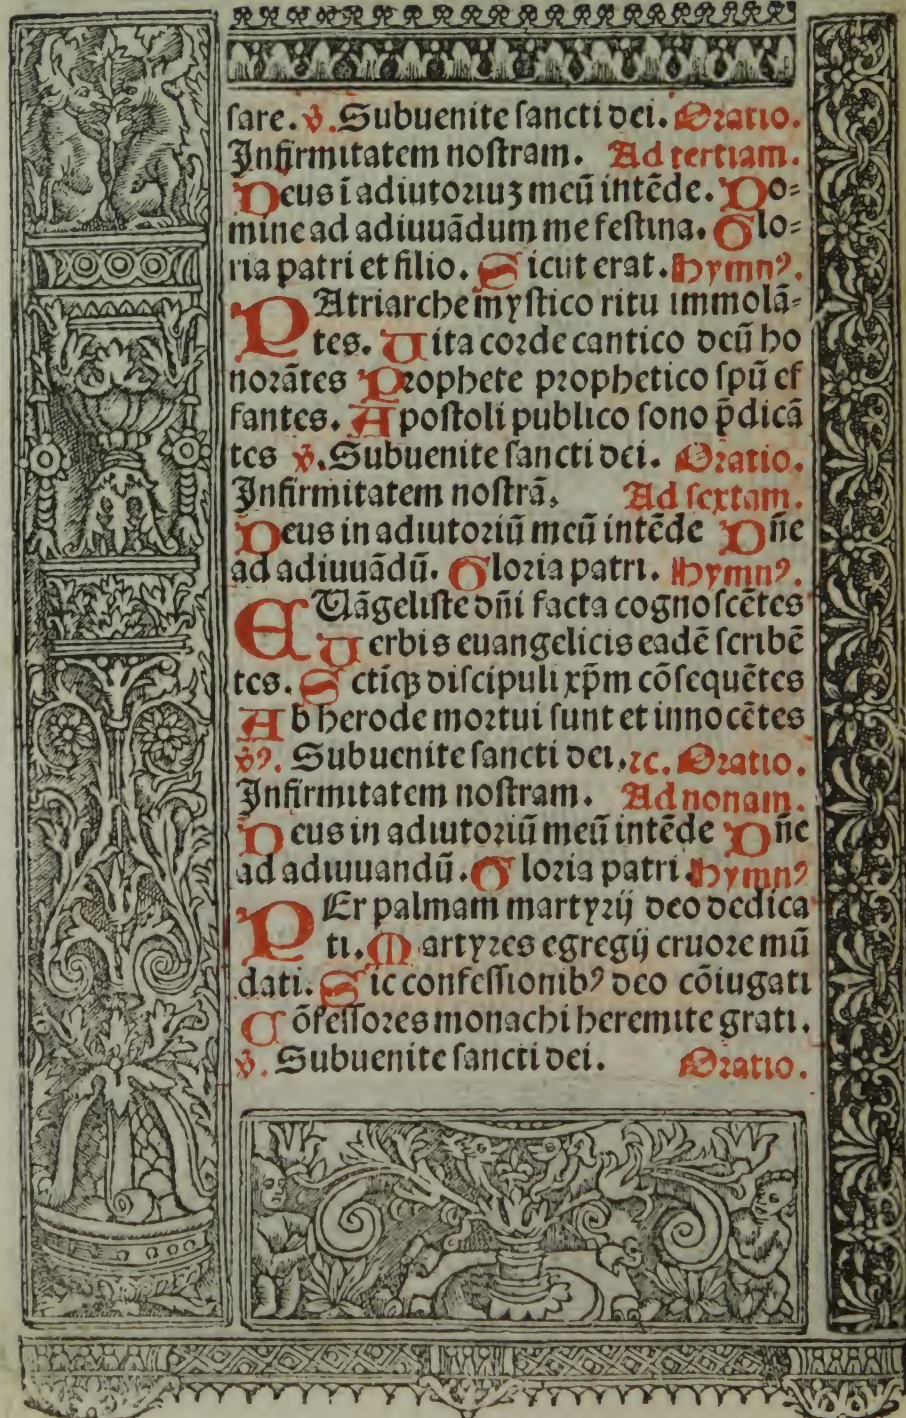 ſare. ℣. Subuenite ſancti dei. Oratio.
Infirmitatem noſtram. Ad tertiam.
Deus ī adiutoriuꝫ meū intēde. Do-
mine ad adiuuādum me feſtina. Glo-
ria patri et filio. Sicut erat. Hymnꝰ.
PAtriarche myſtico ritu immolā-
tes. Uita corde cantico dcū ho
norātes Prophete prophetico ſpū ef
fantes. Apoſtoli publico ſono p̄dicā
tes ℣. Subuenite ſancti dei. Oratio.
Infirmitatem noſtrā. Ad ſextam.
Deus in adiutoriū meū intēde Dn̄e
ad adiuuādū. Gloria patri. Hymnꝰ.
EUāgeliſte dn̄i facta cognoſcētes
Uerbis euangelicis eadē ſcribē
tes. Sctiqꝫ diſcipuli xp̄m cōſequētes
Ab herode mortui ſunt et innocētes
℣ꝰ. Subuenite ſancti dei. ⁊c. Oratio.
Infirmitatem noſtram. Ad nonam.
Deus in adiutoriū meū intēde Dn̄e
ad adiuuandū. Gloria patri. Hymnꝰ
PEr palmam martyrij deo dedica
ti. Martyres egregij cruore mū
dati. Sic confeſſionibꝰ deo cōiugati
Cōfeſſores monachi heremite grati.
℣. Subuenite ſancti dei. Oratio.